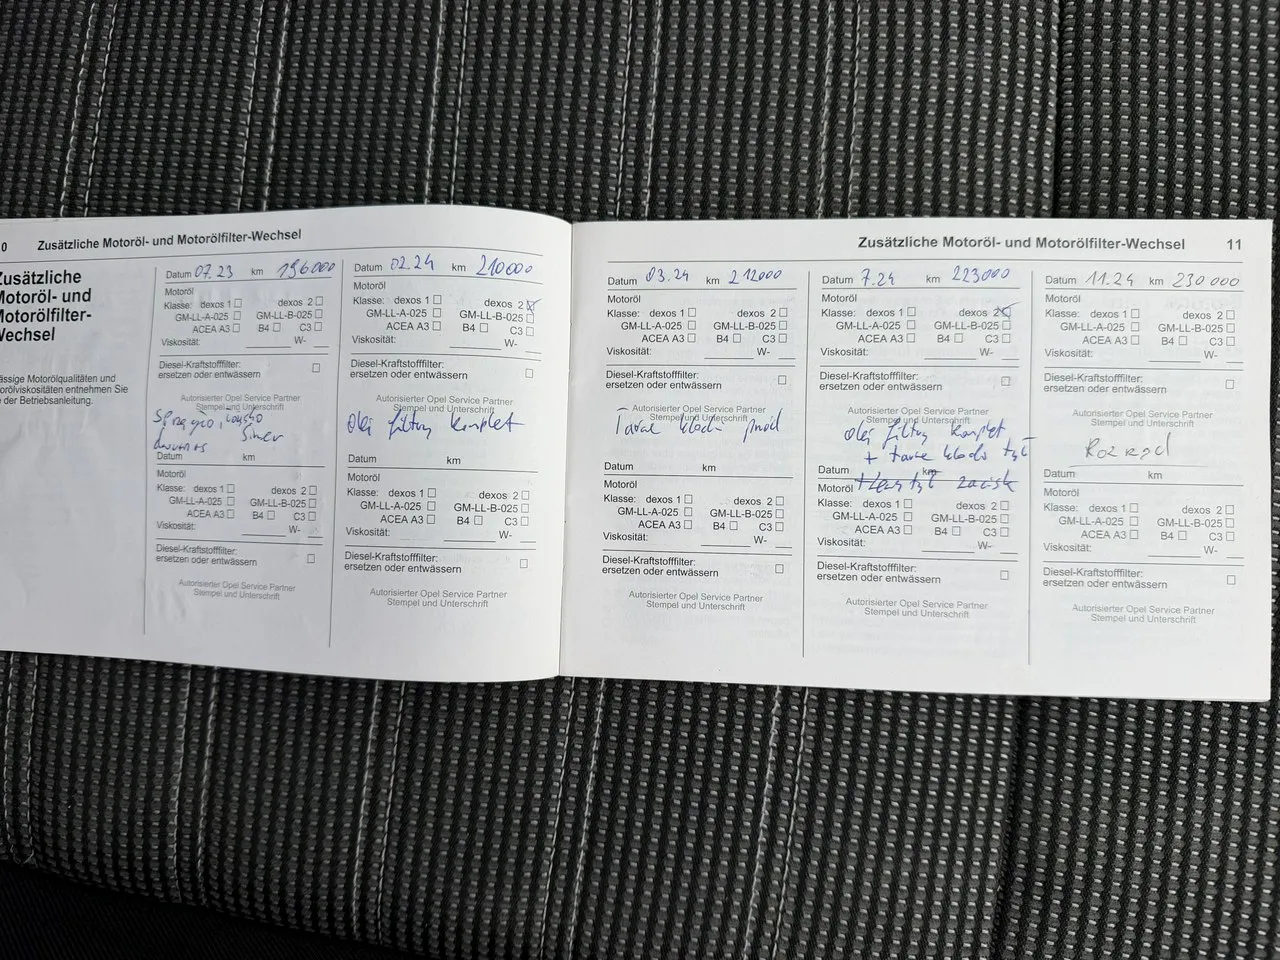 0 Zusätzliche Motoröl- und Motorölfilter-Wechsel
Zusätzliche
Motoröl- und
Motorölfilter-
Wechsel
ässige Motorölqualitäten und
orölviskositäten entnehmen Sie
e der Betriebsanleitung.
Datum 07.23 km 196000
Motoröl
Klasse: dexos 1 dexos 2
GM-LL-A-025 GM-LL-B-025
ACEA A3 B4 C3
Viskosität: W-
Diesel-Kraftstofffilter:
ersetzen oder entwässern
Autorisierter Opel Service Partner
Stempel und Unterschrift
Datum km
Motoröl
Klasse: dexos 1 dexos 2
GM-LL-A-025 GM-LL-B-025
ACEA A3 B4 C3
Viskosität: W-
Diesel-Kraftstofffilter:
ersetzen oder entwässern
Autorisierter Opel Service Partner
Stempel und Unterschrift
Datum 02.24 km 210000
Motoröl
Klasse: dexos 1 dexos 2
GM-LL-A-025 GM-LL-B-025
ACEA A3 B4 C3
Viskosität: W-
Diesel-Kraftstofffilter:
ersetzen oder entwässern
Autorisierter Opel Service Partner
Stempel und Unterschrift
olej filtry komplet
Datum km
Motoröl
Klasse: dexos 1 dexos 2
GM-LL-A-025 GM-LL-B-025
ACEA A3 B4 C3
Viskosität: W-
Diesel-Kraftstofffilter:
ersetzen oder entwässern
Autorisierter Opel Service Partner
Stempel und Unterschrift
Zusätzliche Motoröl- und Motorölfilter-Wechsel 11
Datum 03.24 km 212000
Motoröl
Klasse: dexos 1 dexos 2
GM-LL-A-025 GM-LL-B-025
ACEA A3 B4 C3
Viskosität: W-
Diesel-Kraftstofffilter:
ersetzen oder entwässern
Autorisierter Opel Service Partner
Stempel und Unterschrift
Tarcze klocki przód
Datum km
Motoröl
Klasse: dexos 1 dexos 2
GM-LL-A-025 GM-LL-B-025
ACEA A3 B4 C3
Viskosität: W-
Diesel-Kraftstofffilter:
ersetzen oder entwässern
Autorisierter Opel Service Partner
Stempel und Unterschrift
Datum 7.24 km 223000
Motoröl
Klasse: dexos 1 dexos 2
GM-LL-A-025 GM-LL-B-025
ACEA A3 B4 C3
Viskosität: W-
Diesel-Kraftstofffilter:
ersetzen oder entwässern
Autorisierter Opel Service Partner
Stempel und Unterschrift
olej filtry komplet
+ tarcze klocki tył
Datum km
Motoröl tył zacisk
Klasse: dexos 1 dexos 2
GM-LL-A-025 GM-LL-B-025
ACEA A3 B4 C3
Viskosität: W-
Diesel-Kraftstofffilter:
ersetzen oder entwässern
Autorisierter Opel Service Partner
Stempel und Unterschrift
Datum 11.24 km 230 000
Motoröl
Klasse: dexos 1 dexos 2
GM-LL-A-025 GM-LL-B-025
ACEA A3 B4 C3
Viskosität: W-
Diesel-Kraftstofffilter:
ersetzen oder entwässern
Autorisierter Opel Service Partner
Stempel und Unterschrift
Rozrząd
Datum km
Motoröl
Klasse: dexos 1 dexos 2
GM-LL-A-025 GM-LL-B-025
ACEA A3 B4 C3
Viskosität: W-
Diesel-Kraftstofffilter:
ersetzen oder entwässern
Autorisierter Opel Service Partner
Stempel und Unterschrift